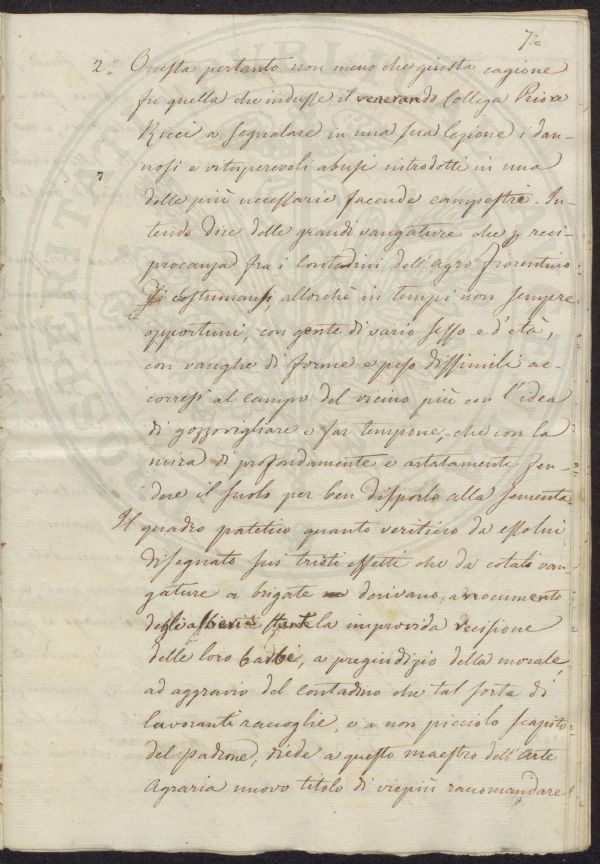 7.a
2.o Questa pertanto non meno che giusta cagione
fu quella che indusse il venerando Collega Priore
Ricci a segnalare in una sua lezione i dan-
nosi e vituperevoli abusi introdotti in una
7
delle più necessarie faccende campestri. In-
tendo dire delle grandi vangature che p reci-
procanza fra i Contadini dell'Agro fiorentino
si costumano, allorchè in tempi non sempre
opportuni, con gente di vario sesso e d'età,
con vanghe di forme e peso dissimili ac-
corresi al campo del vicino più con l'idea
di gozzovigliare e far tempone, che con la
mira di profondamente e artatamente fen-
dere il suolo per ben disporlo alla sementa.
Il quadro patetico quanto veritiero da essolui
disegnato sui tristi effetti che da cotali van-
gature a brigate derivano, a nocumento
degli alberi stante la improvida recisione
delle loro barbe, a pregiudizio della morale,
ad aggravio del contadino che tal sorta di
lavoranti raccoglie, e a non picciolo scapito
del padrone, diede a questo maestro dell'Arte
Agraria nuovo titolo di viepiù raccomandare